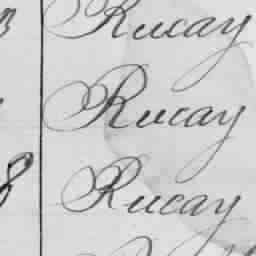 Rucay
Rucay
8 Rucay